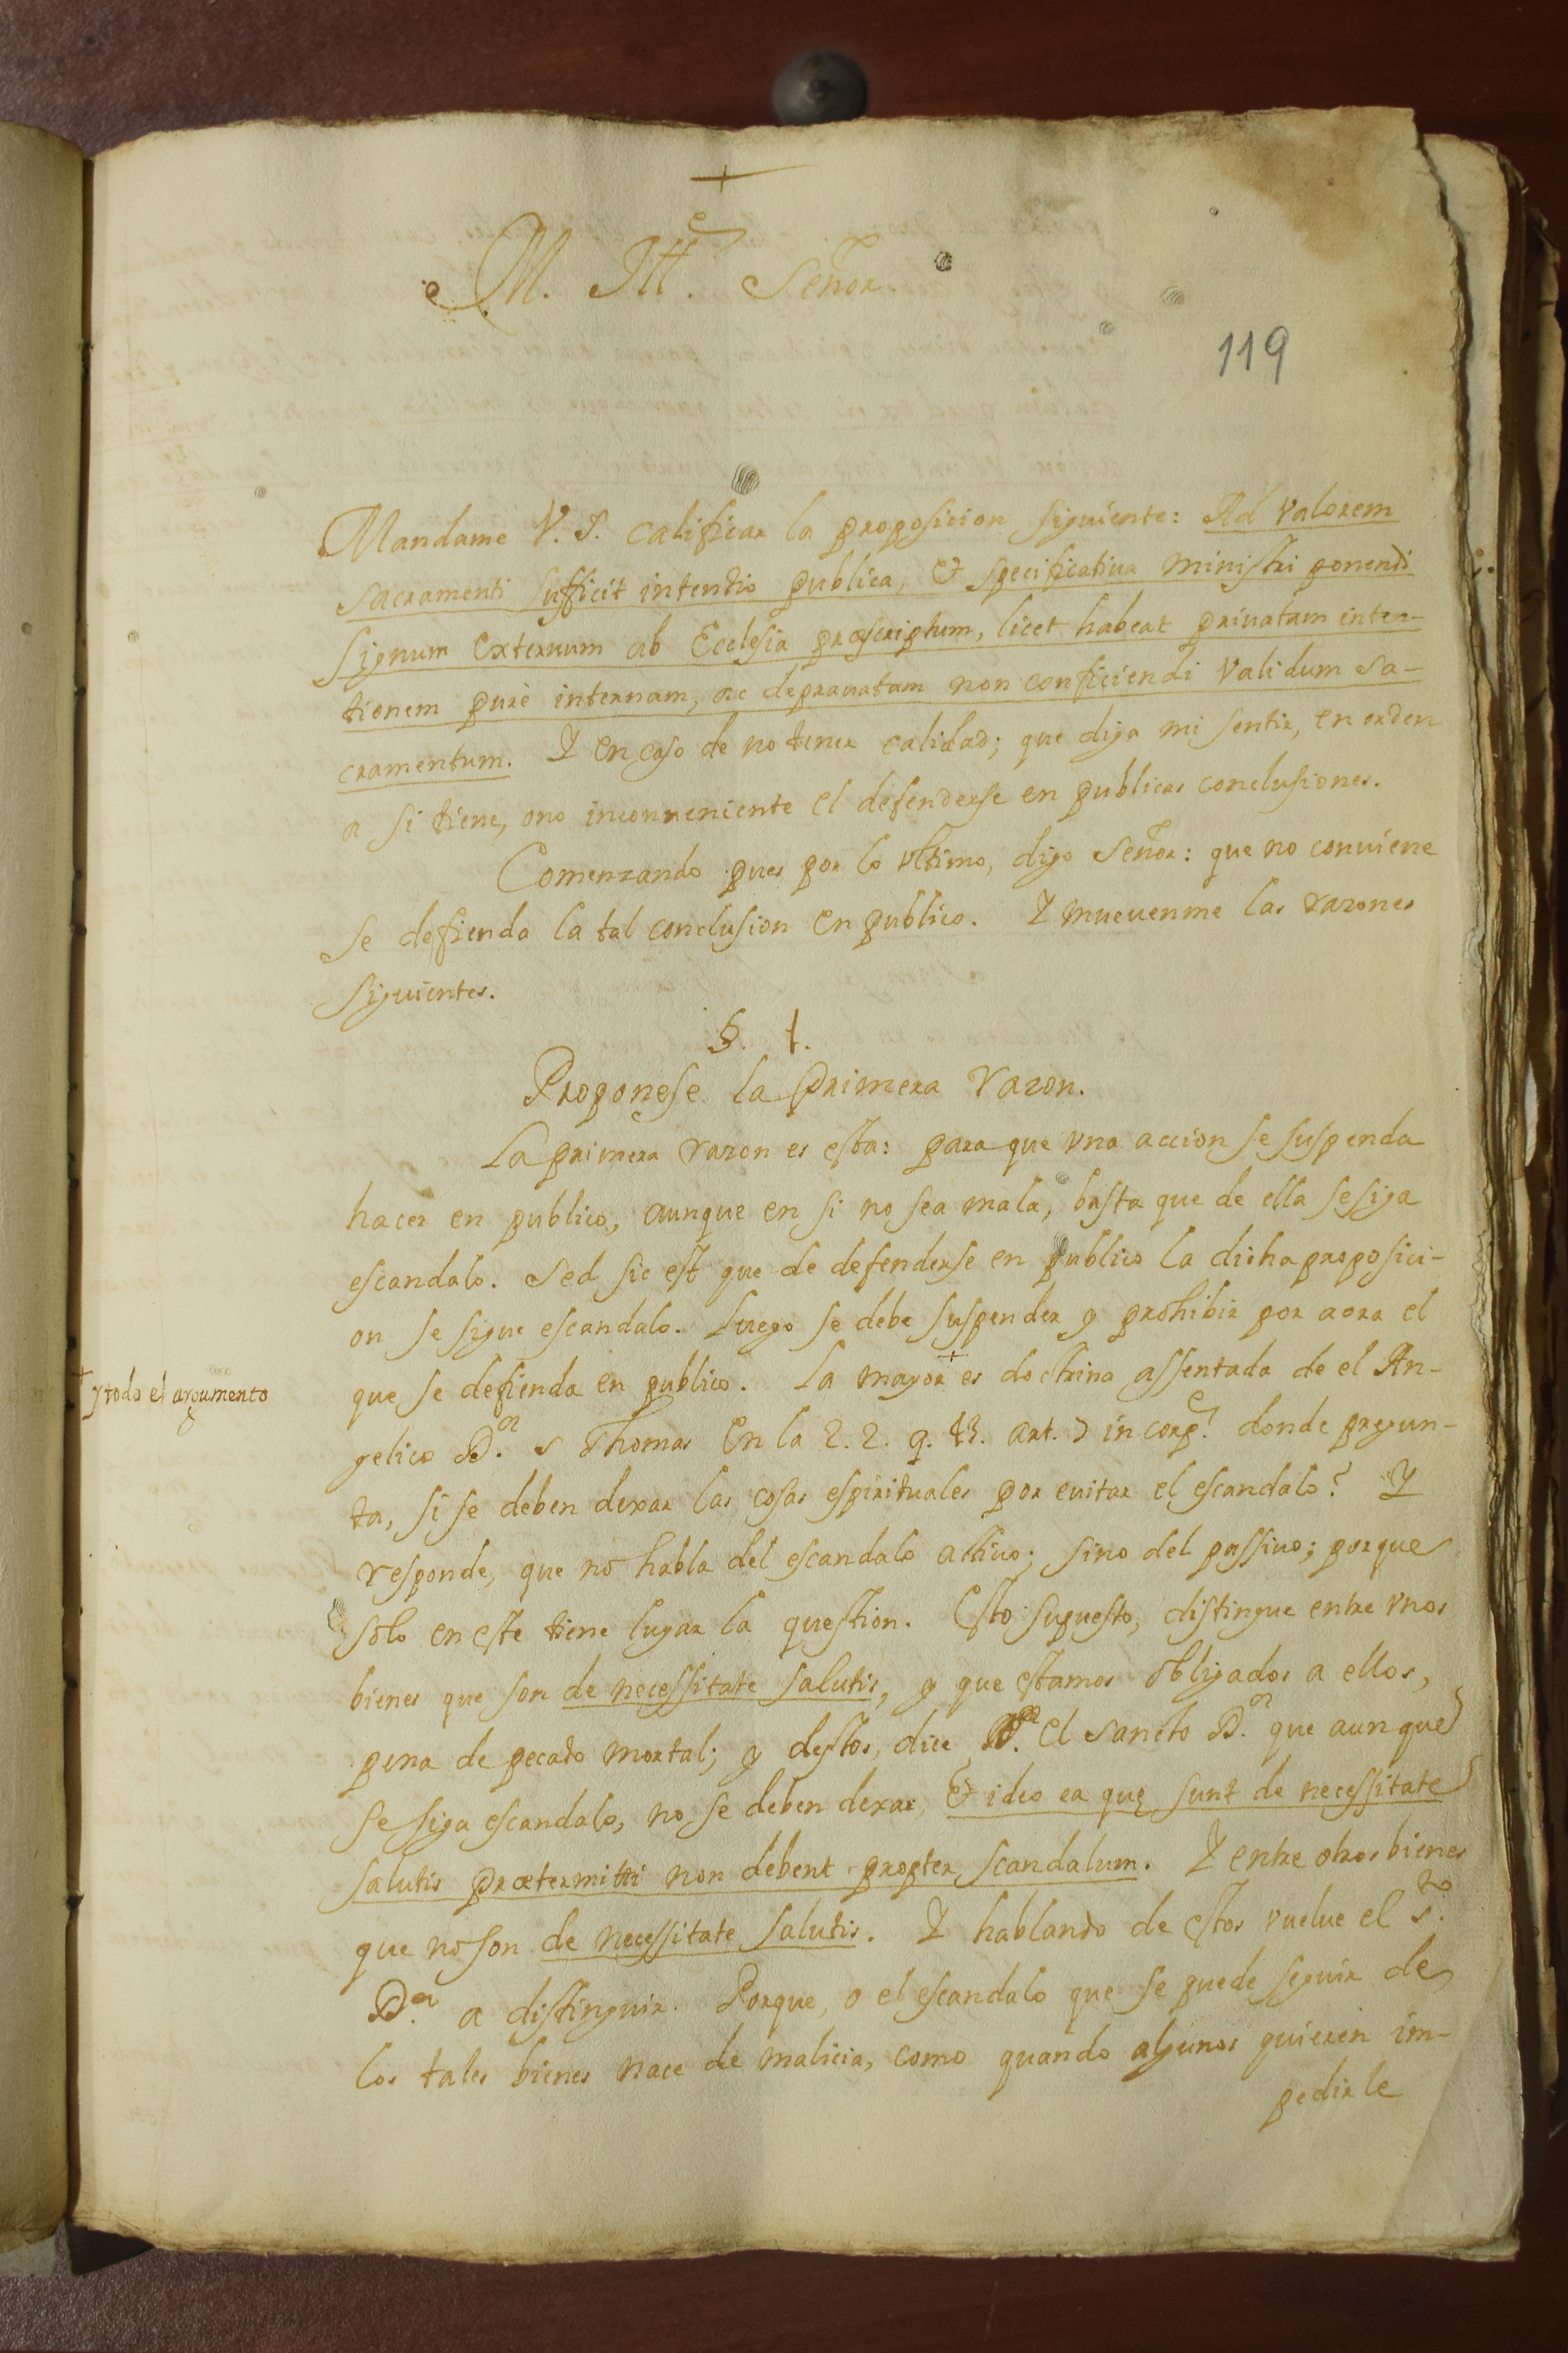 +
M. Ill.e Señor.
119
Mandame V. S. calificar la proposicion siguiente: Ad valorem
sacramenti sufficit intentio publica, & specificativa ministri ponendi
signum externum ab Ecclesia præscriptum, licet habeat privatam inten-
tionem purè internam, ac depravatam non conficiendi validum sa-
cramentum. Y en caso de no tener calidad; que diga mi sentir, en orden
a si tiene, o no inconveniente el defenderse en publicas conclusiones.
Comenzando pues por lo vltimo, digo Señor: que no conviene
se defienda la tal conclusion en publico. Y muevenme las razones
siguientes.
§. 1.
Proponese la Primera razon.
La primera razon es esta: para que vna accion se suspenda
hacer en publico, aunque en si no sea mala, basta que de ella se siga
escandalo. Sed sic est que de defenderse en publico la dicha proposici-
on se sigue escandalo. Luego se debe suspender y prohibir por aora el
que se defienda en publico. La mayor + es doctrina assentada de el An-
+ y todo el argumento
gelico D.or S Thomas En la 2. 2. q. 43. art. 7 in corp.e donde pregun-
ta, si se deben dexar las cosas espirituales por euitar el escandalo? Y
responde, que no habla del escandalo actiuo; sino del passiuo; porque
solo en este tiene lugar la question. Esto supuesto, distingue entre vnos
bienes que son de necessitate salutis, y que estamos obligados a ellos,
pena de pecado mortal; y destos, dice el Sancto D.or que aunque
se siga escandalo, no se deben dexar, & ideo ea quę sunt de necessitate
salutis prætermitti non debent propter scandalum. Y entre otros bienes
que no son de necessitate salutis. Y hablando de estos vuelve el S.to
D.or a distinguir. Porque, o el escandalo que se puede seguir de
los tales bienes nace de malicia, como quando algunos quieren im-
pedirle